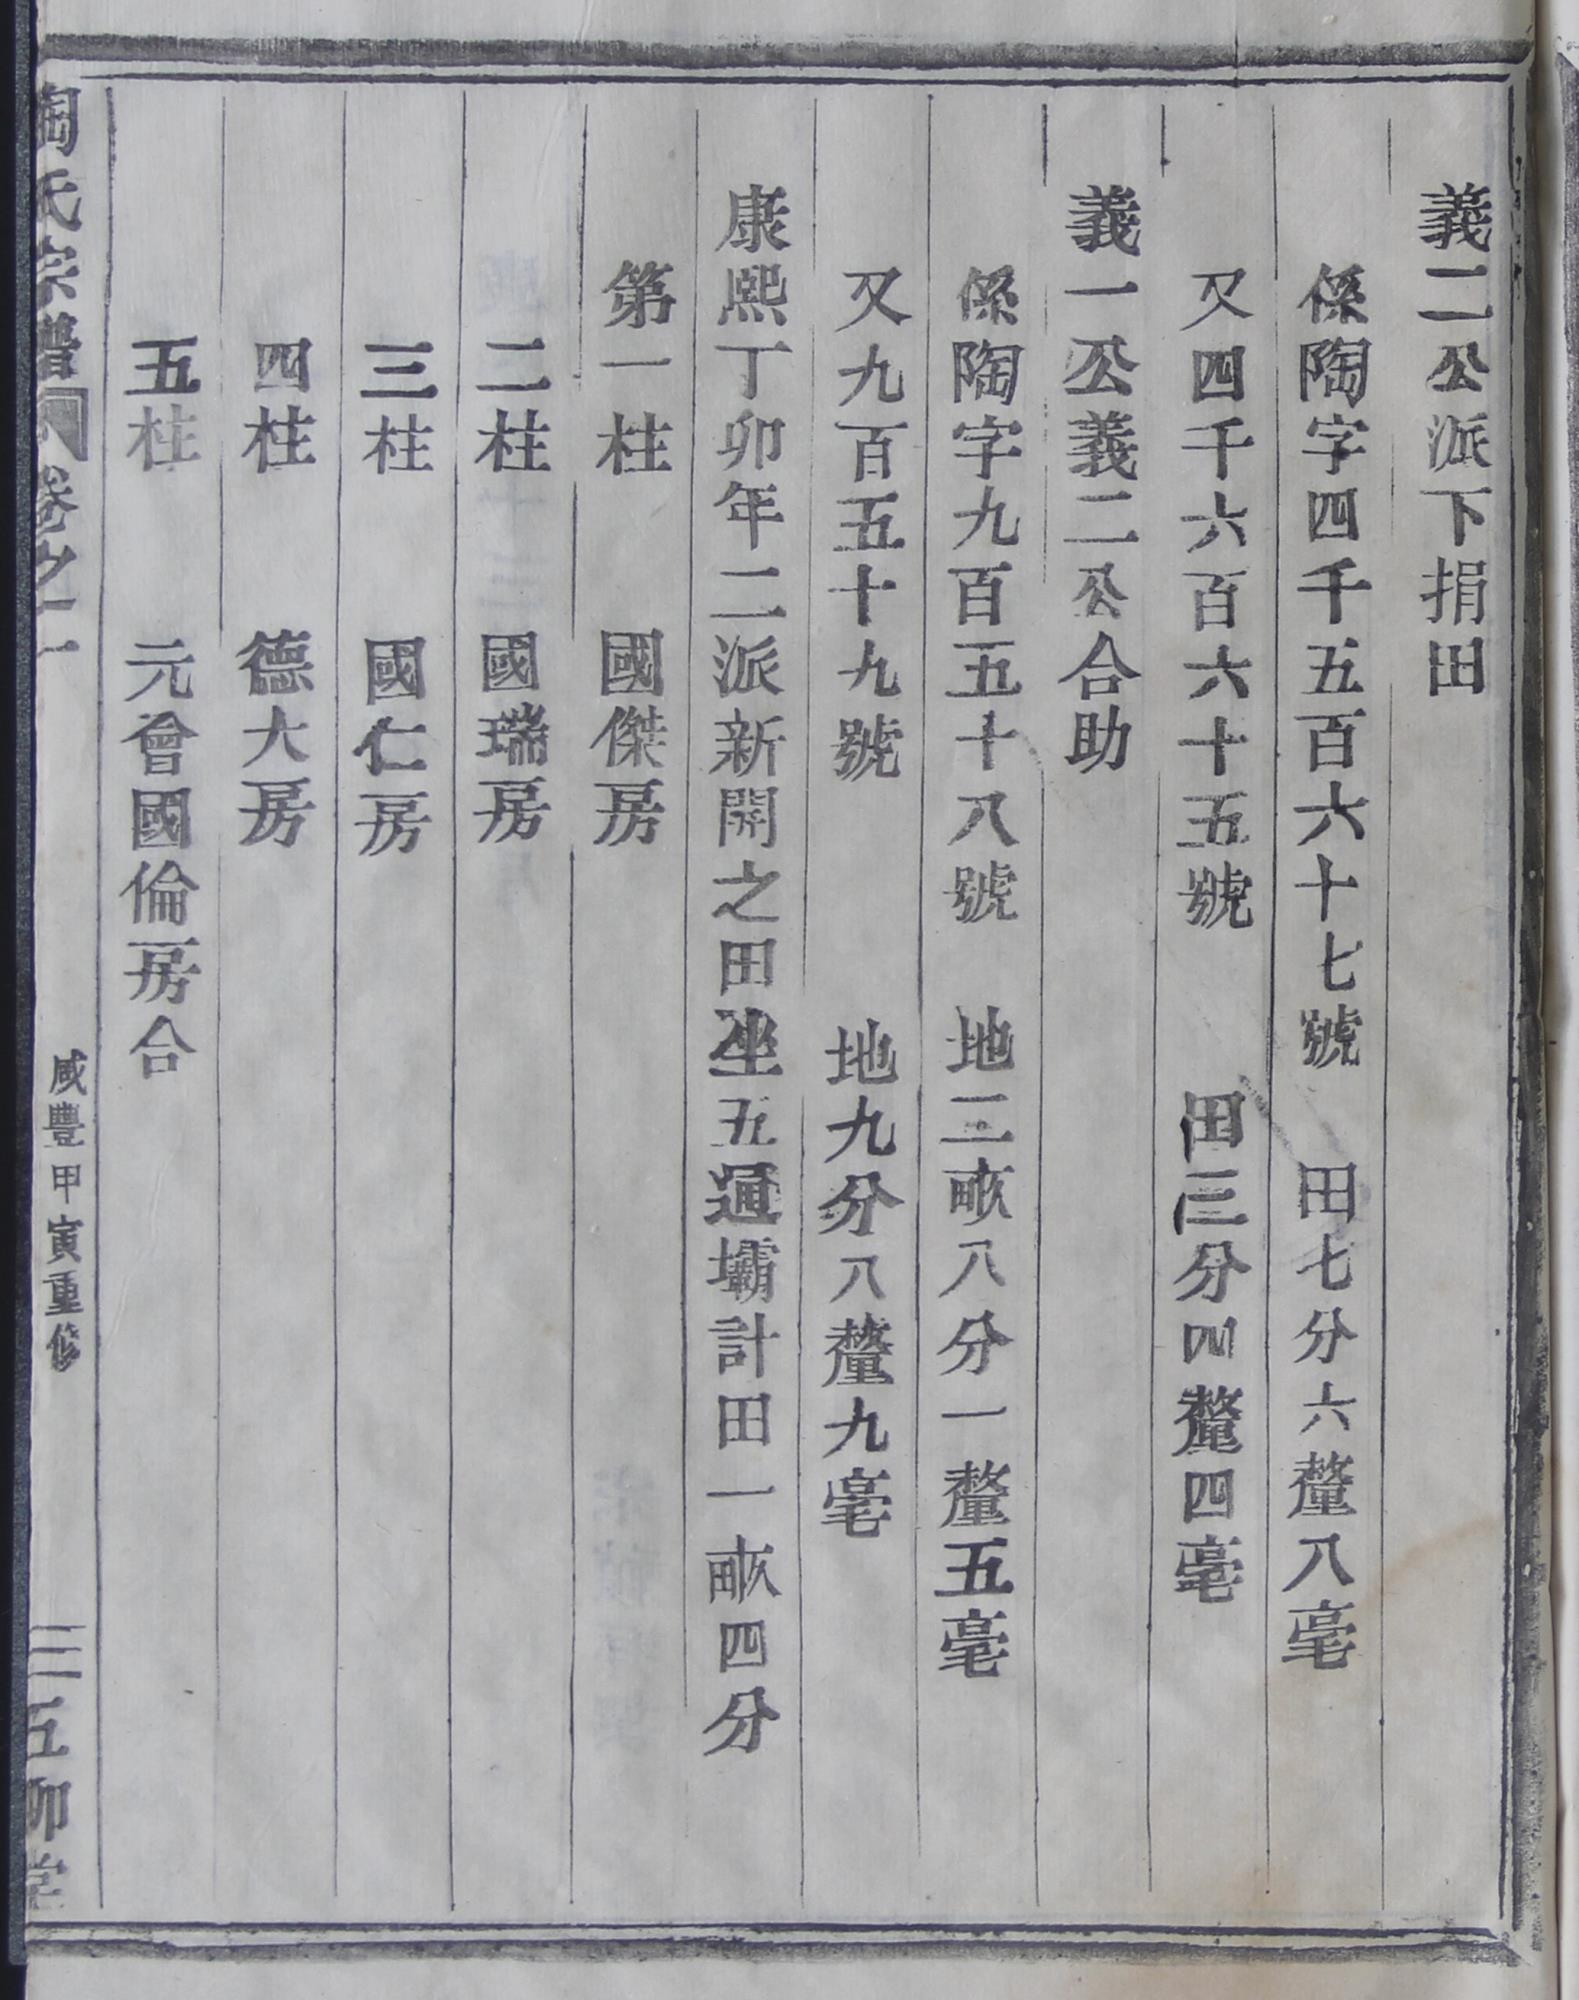 義二公派下捐田
係陶字四千五百六十七號　田七分六釐八毫
又四千六百六十五號　田三分四釐四毫
義一公義二公合助
係陶字九百五十八號　地二畝八分一釐五毫
又九百五十九號　地九分八釐九毫
康熙丁卯年二派新開之田坐五通壩計田一畝四分
第一柱　國傑房
二柱　國瑞房
三柱　國仁房
四柱　德大房
五柱　元會國倫房合
陶氏宗譜　卷之一　咸豐甲寅重修　五柳堂